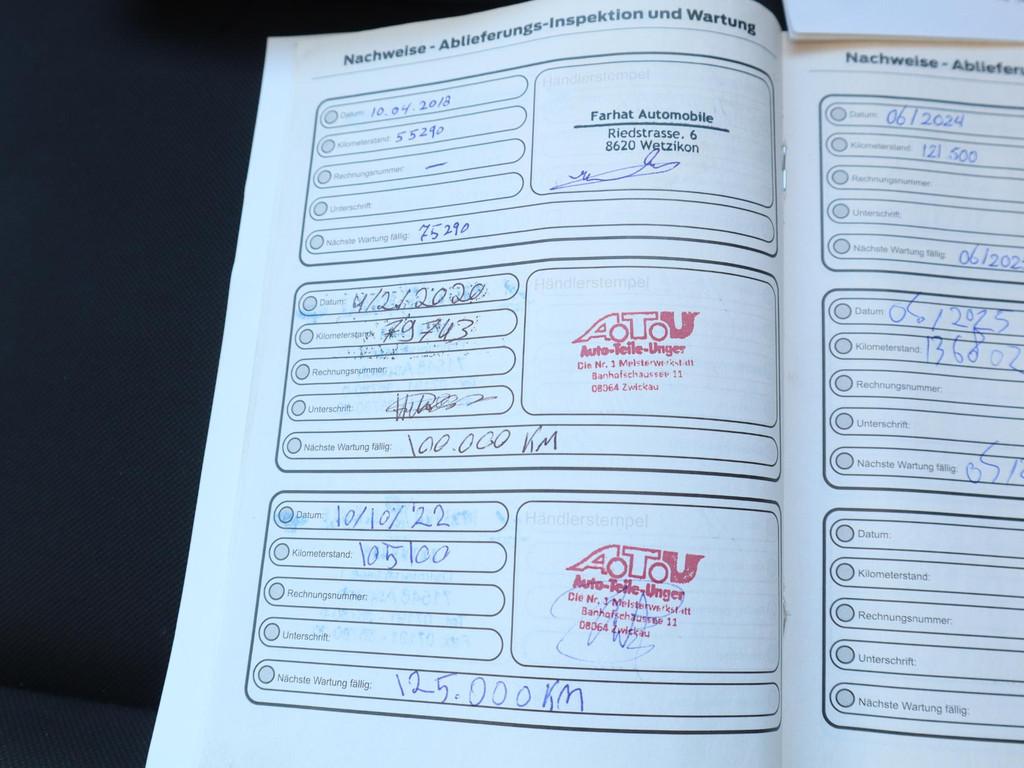 Nachweise - Ablieferungs-Inspektion und Wartung
Datum: 10.04.2018
Kilometerstand: 55290
Rechnungsnummer: –
Unterschrift:
Nächste Wartung fällig: 75290
Händlerstempel
Farhat Automobile
Riedstrasse. 6
8620 Wetzikon
Datum: 4/2/2020
Kilometerstand: 79743
Rechnungsnummer:
Unterschrift:
Nächste Wartung fällig: 100.000 KM
Händlerstempel
A.T.U
Auto-Teile-Unger
Die Nr. 1 Meisterwerkstatt
Banhofschaussee 11
08064 Zwickau
Datum: 10/10/22
Kilometerstand: 105100
Rechnungsnummer:
Unterschrift:
Nächste Wartung fällig: 125.000 KM
Händlerstempel
A.T.U
Auto-Teile-Unger
Die Nr. 1 Meisterwerkstatt
Banhofschaussee 11
08064 Zwickau
Nachweise - Ablieferu
Datum: 06/2024
Kilometerstand: 121 500
Rechnungsnummer:
Unterschrift:
Nächste Wartung fällig: 06/202
Datum: 05/2025
Kilometerstand: 136802
Rechnungsnummer:
Unterschrift:
Nächste Wartung fällig: 05/
Datum:
Kilometerstand:
Rechnungsnummer:
Unterschrift:
Nächste Wartung fällig: